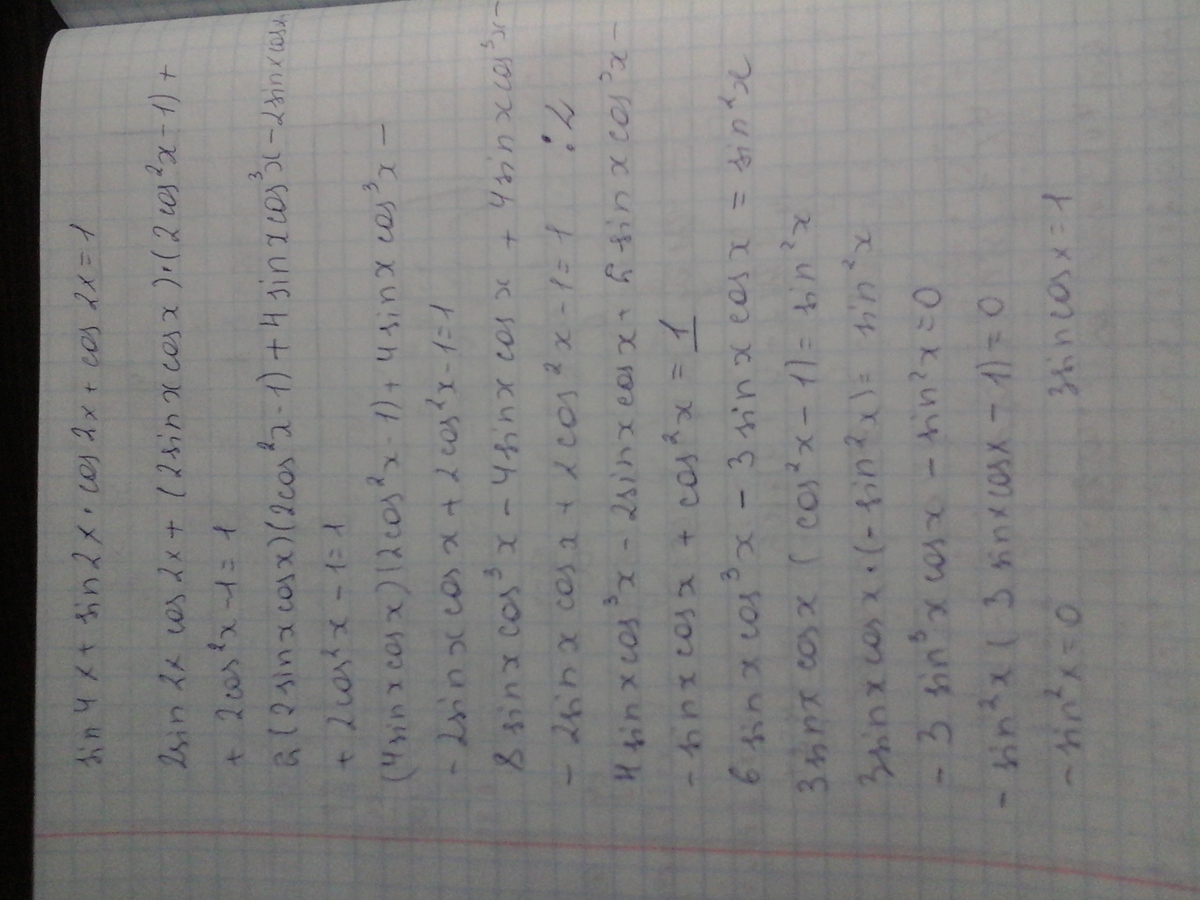 sin 4x + sin 2x · cos 2x + cos 2x = 1
2sin 2x cos 2x + (2sin x cos x) · (2cos²x - 1) +
+ 2cos²x - 1 = 1
2(2sin x cos x)(2cos²x - 1) + 4sin x cos³x - 2sin x cos x
+ 2cos²x - 1 = 1
(4sin x cos x)(2cos²x - 1) + 4sin x cos³x -
- 2sin x cos x + 2cos²x - 1 = 1
8 sin x cos³x - 4sin x cos x + 4sin x cos³x -
- 2sin x cos x + 2cos²x - 1 = 1 :2
4sin x cos³x - 2sin x cos x + 2sin x cos³x -
- sin x cos x + cos²x = 1
6 sin x cos³x - 3 sin x cos x = sin²x
3sin x cos x (cos²x - 1) = sin²x
3sin x cos x · (- sin²x) = sin²x
- 3 sin³x cos x - sin²x = 0
- sin²x (3 sin x cos x - 1) = 0
- sin²x = 0 3sin cos x = 1